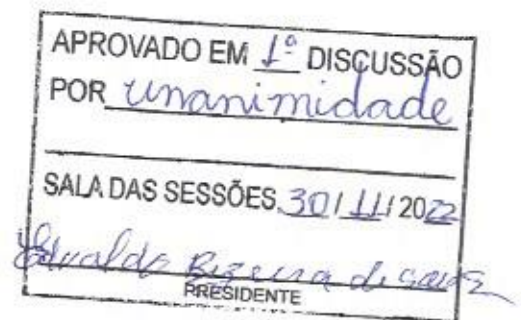 APROVADO EM 1º DISCUSSÃO
POR unanimidade
SALA DAS SESSÕES, 30/11/2022
Bezerra de
PRESIDENTE